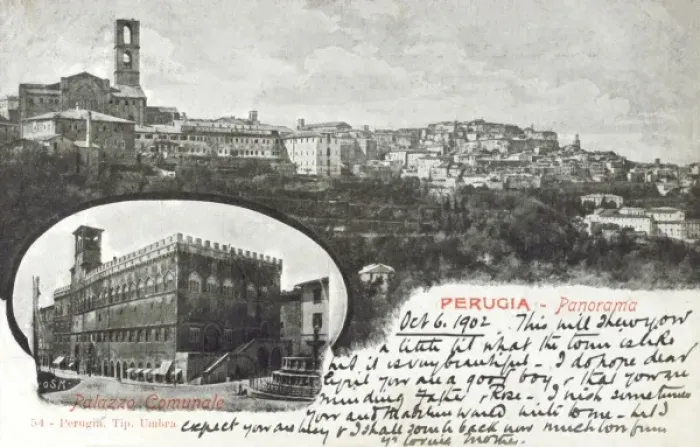 PERUGIA - Panorama
Oct 6. 1902. This will shew you
a little bit what the town is like
but it is very beautiful - I do hope dear
Cyril you are a good boy, & that you are
minding Father & Rose - I wish sometimes
You and would write to me - but I
expect you are busy & I shall soon be back now much love from
yr loving Mother.
OSK
Palazzo Comunale
54 - Perugia. Tip. Umbra